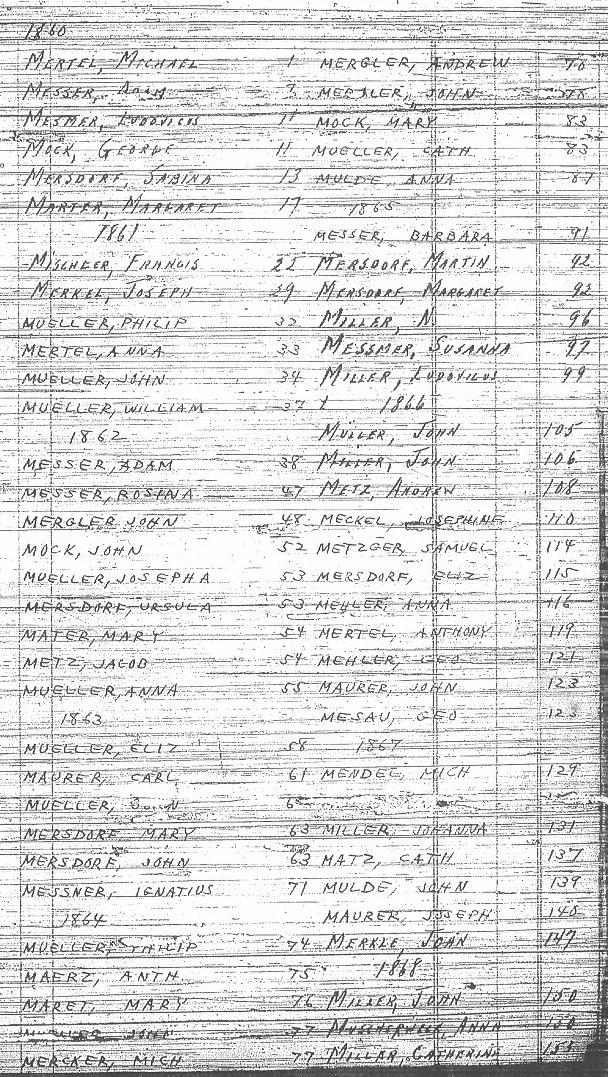 1860
MERTEL, MICHAEL 1
MESSER, ADAM
MESMER, LUDOVICUS 11
MOCK, GEORGE 11
MERSDORF, SABINA 13
MARTER, MARGARET 17
1861
MISCHLER, FRANCIS 22
MERKEL, JOSEPH 29
MUELLER, PHILIP 32
MERTEL, ANNA 33
MUELLER, JOHN 34
MUELLER, WILLIAM 37
1862
MESSER, ADAM 38
MESSER, ROSINA 47
MERGLER JOHN 48
MOCK, JOHN 52
MUELLER, JOSEPHA 53
MERSDORF, URSULA 53
MATER, MARY 54
METZ, JACOB 54
MUELLER, ANNA 55
1863
MUELLER, ELIZ 58
MAURER, CARL 61
MUELLER,
MERSDORF, MARY 63
MERSDORF, JOHN 63
MESSNER, IGNATIUS 71
1864
MUELLER, PHILIP 74
MAERZ, ANTH 75
MARET, MARY 76
MUELLER JOHN 77
MERCKER, MICH 77
MERGLER, ANDREW 78
JOHN 78
MOCK, MARY 83
MUELLER, CATH 83
MULDE, ANNA 87
1865
MESSER, BARBARA 91
MERSDORF, MARTIN 92
MERSDORF, MARGARET 92
MILLER, N. 96
MESSMER, SUSANNA 97
MILLER, LUDOVICUS 99
1866
MULLER, JOHN 105
MILLER, JOHN 106
METZ, ANDREW 108
MECKEL, JOSEPHINE 110
METZGER, SAMUEL 114
MERSDORF, ELIZ 115
MEHLER, ANNA 116
MERTEL, ANTHONY 119
MEHLER, GEO 121
MAURER, JOHN 123
MESAU, GEO 125
1867
MENDEL, MICH 129
MILLER, JOHANNA 131
MATZ, CATH 137
MULDE, JOHN 139
MAURER, JOSEPH 140
MERKLE, JOHN 147
1868
MILLER, JOHN 150
ANNA 150
MILLAR, CATHERINA